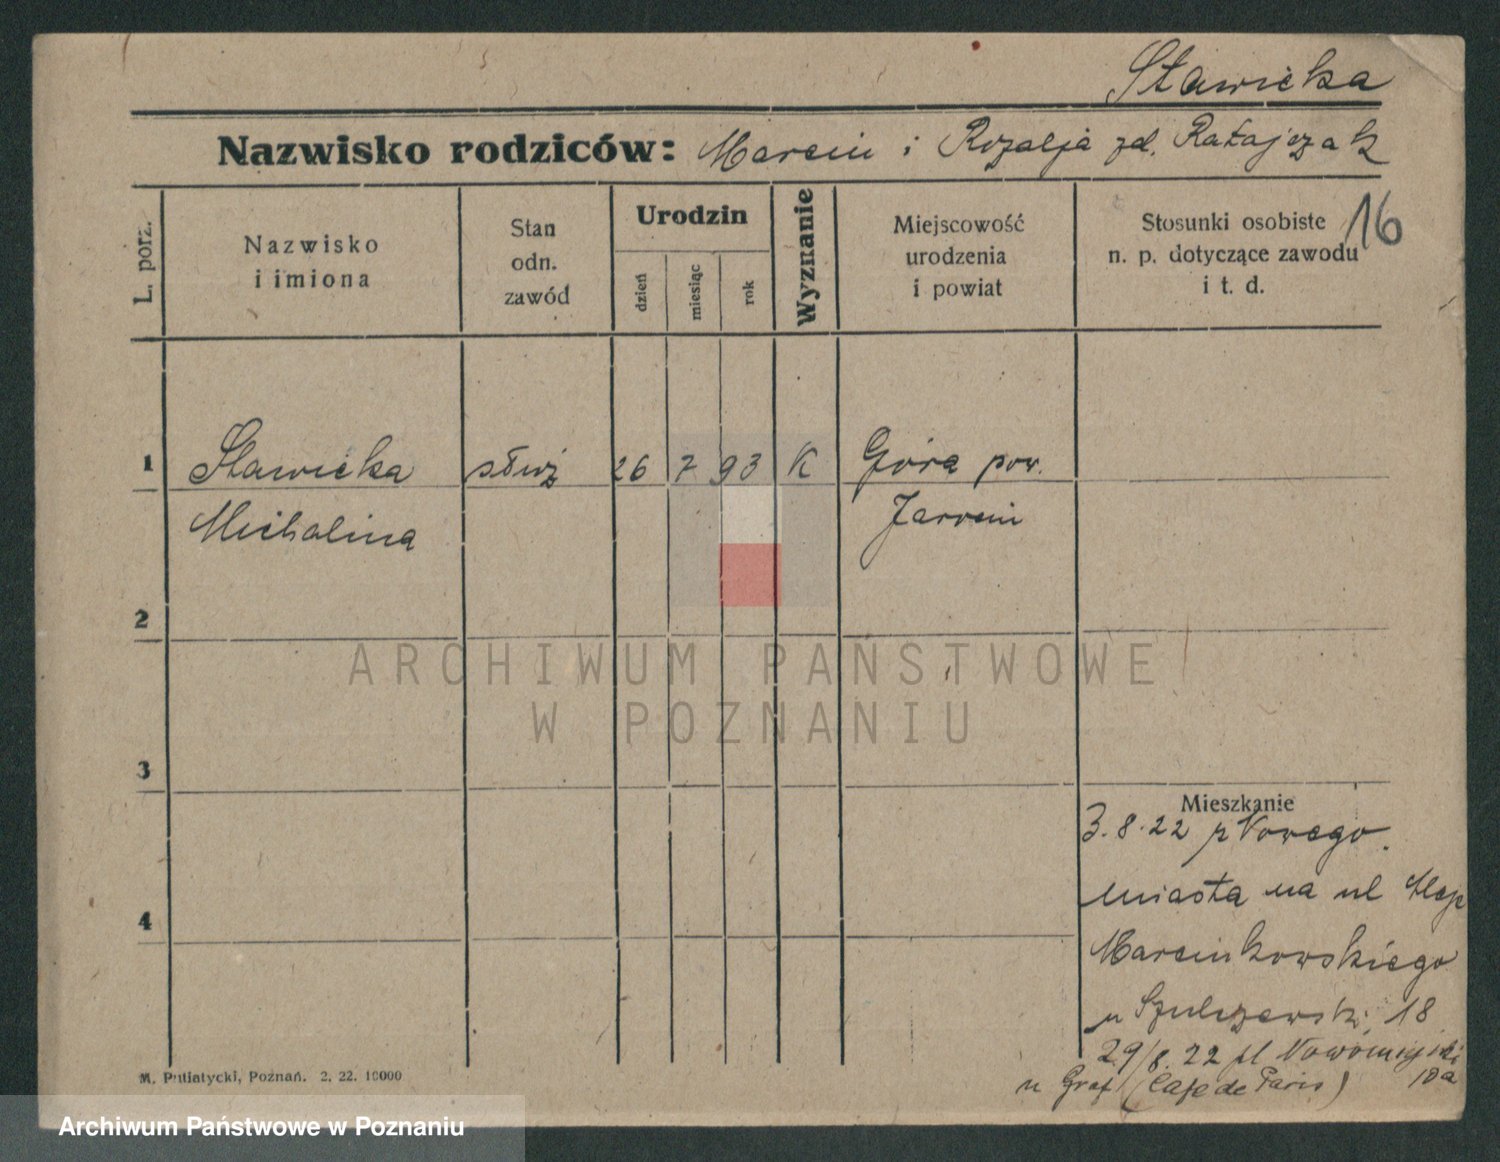 Sławicka
Nazwisko rodziców: Marcin i Rozalja zd. Ratajczak
L. porz.
Nazwisko
i imiona
Stan
odn.
zawód
Urodzin
dzień
miesiąc
rok
Wyznanie
Miejscowość
urodzenia
i powiat
Stosunki osobiste
n. p. dotyczące zawodu
i t. d.
16
1 Sławicka służ 26 7 93 K Góra pow.
Michalina Jarocin
2
ARCHIWUM PAŃSTWOWE
W POZNANIU
3
Mieszkanie
3.8.22 z Nowego
miasta na ul
4
Marcinkowskiego
u Szulczewski 18
29/8.22 pl Nowomiejski
u Graf (Cafe de Paris) 10a
M. Putiatycki, Poznań. 2. 22. 10000
Archiwum Państwowe w Poznaniu